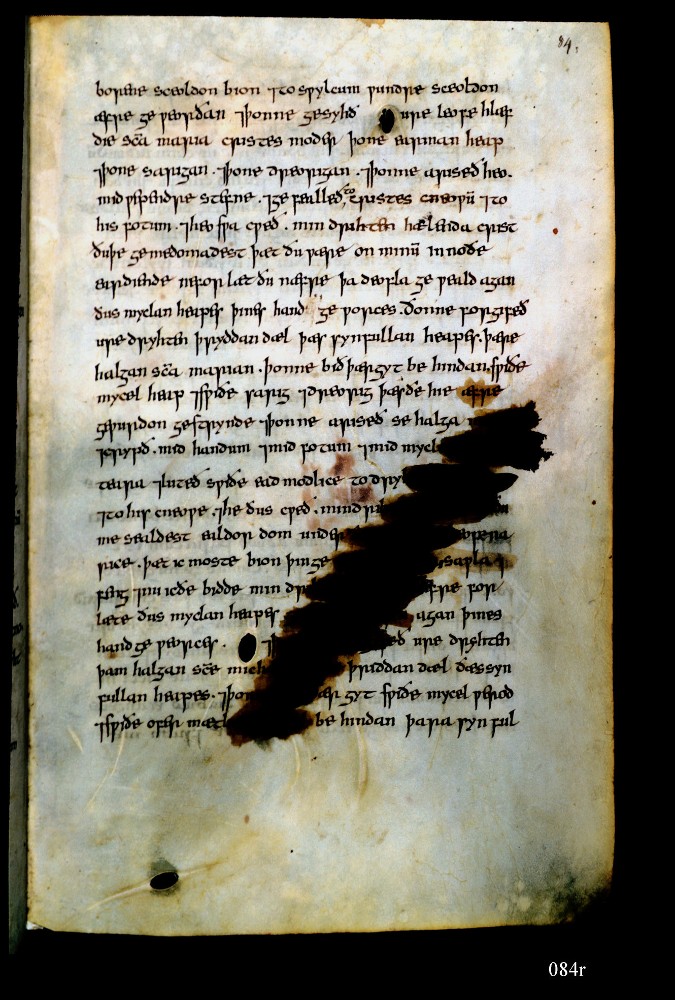 84.
borene sceoldon bion ⁊ to swylcum wundre sceoldon
æfre ge weorðan ⁊ þonne gesyhð ure leofe hlæf
die sc̄a maria cristes moder þone earman heap
⁊ þone sarigan . ⁊ þone dreorigan . ⁊ þonne ariseð heo .
mid wependre stefne . ⁊ ge fealleð to cristes cneowū ⁊ to
his fotum . ⁊ heo swa cweð . min drihten hælenda crist
ðu þe gemedomadest þæt ðu wære on minū innoðe
eardiende ne for læt ðu næfre þa deofla ge weald agan
ðus myclan heapes þines hand ge weorces . Ðonne forgifeð
ure dryhten þryddan dæl þæs synfullan heapes . þære
halgan sc̄a marian . þonne bið þær gyt be hindan . swiðe
mycel heap ⁊ swiðe sarig ⁊ dreorig þæs ðe hie æfre
gewurdon gestrynde ⁊ þonne ariseð se halga
⁊ crypð . mid handum ⁊ mid fotum ⁊ mid mycl
teara ⁊ luteð swiðe ead modlice to dry
⁊ to his cneowe . ⁊ he ðus cweð . min dri
me sealdest ealdor dom under
rice . þæt ic moste bion þinge sawla
feng ⁊ nu ic ðe bidde min dr æfre for
læte ðus myclan heapes agan þines
hand ge weorces . ⁊ ure drihten
þam halgan sc̄e mich þriddan dæl ðæs syn
fullan heapes . ⁊ þon ær gyt swiðe mycel werod
⁊ swiðe ofer mæt be hindan þara syn ful
084r